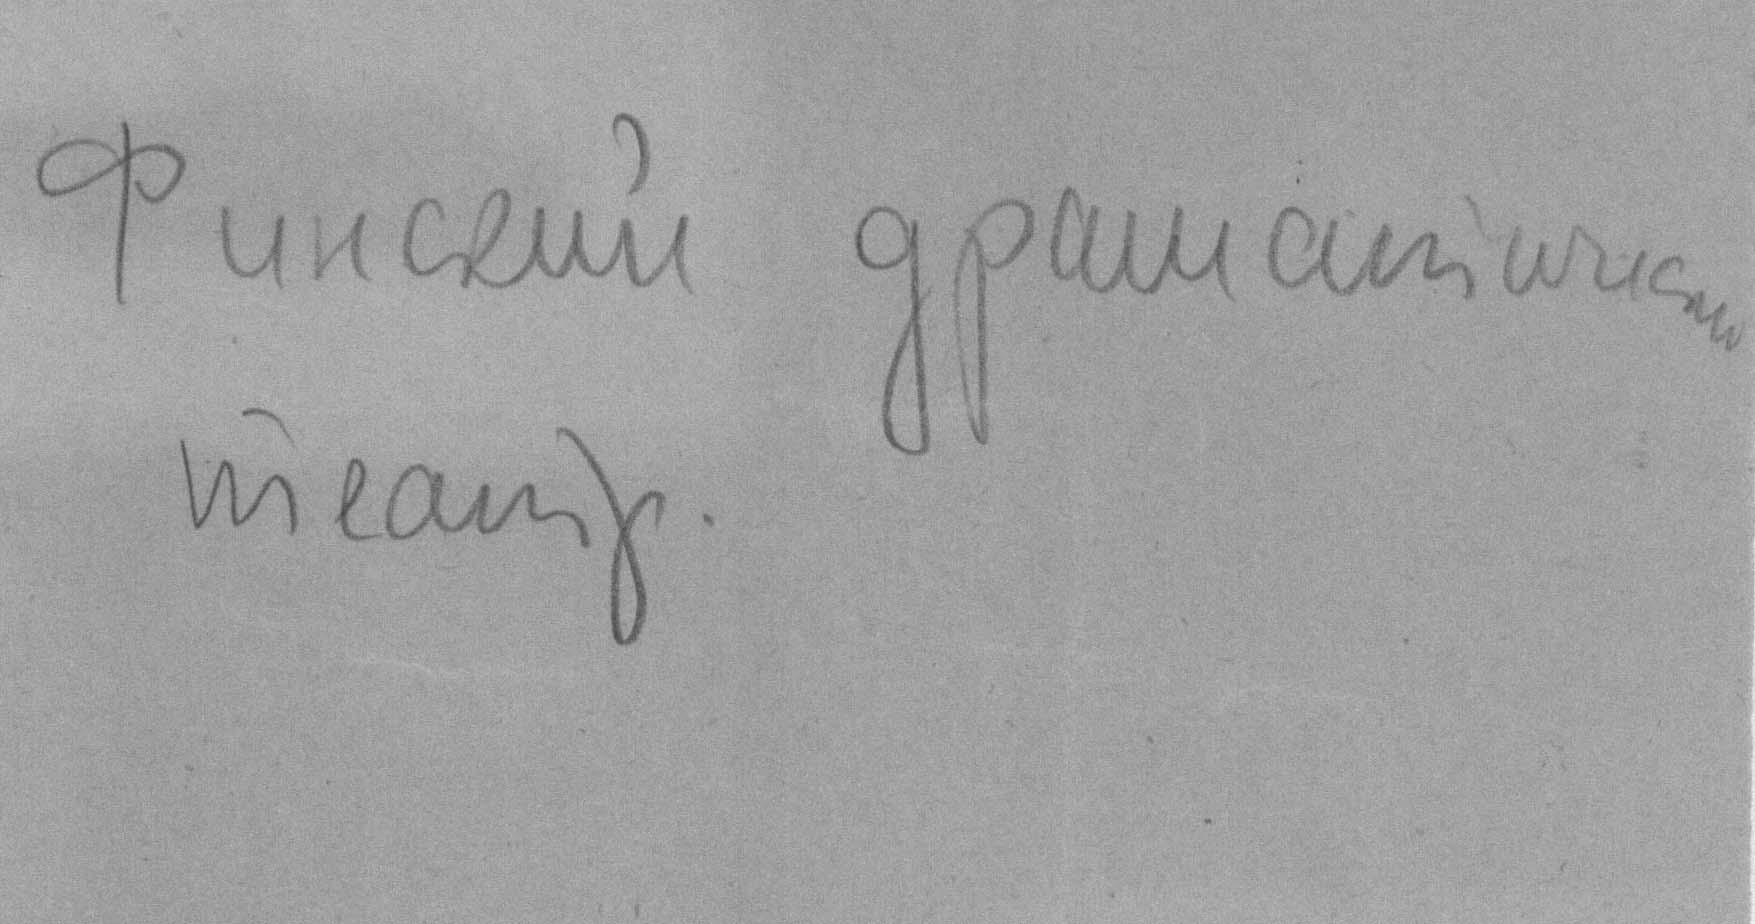 Финский драматический
театр.